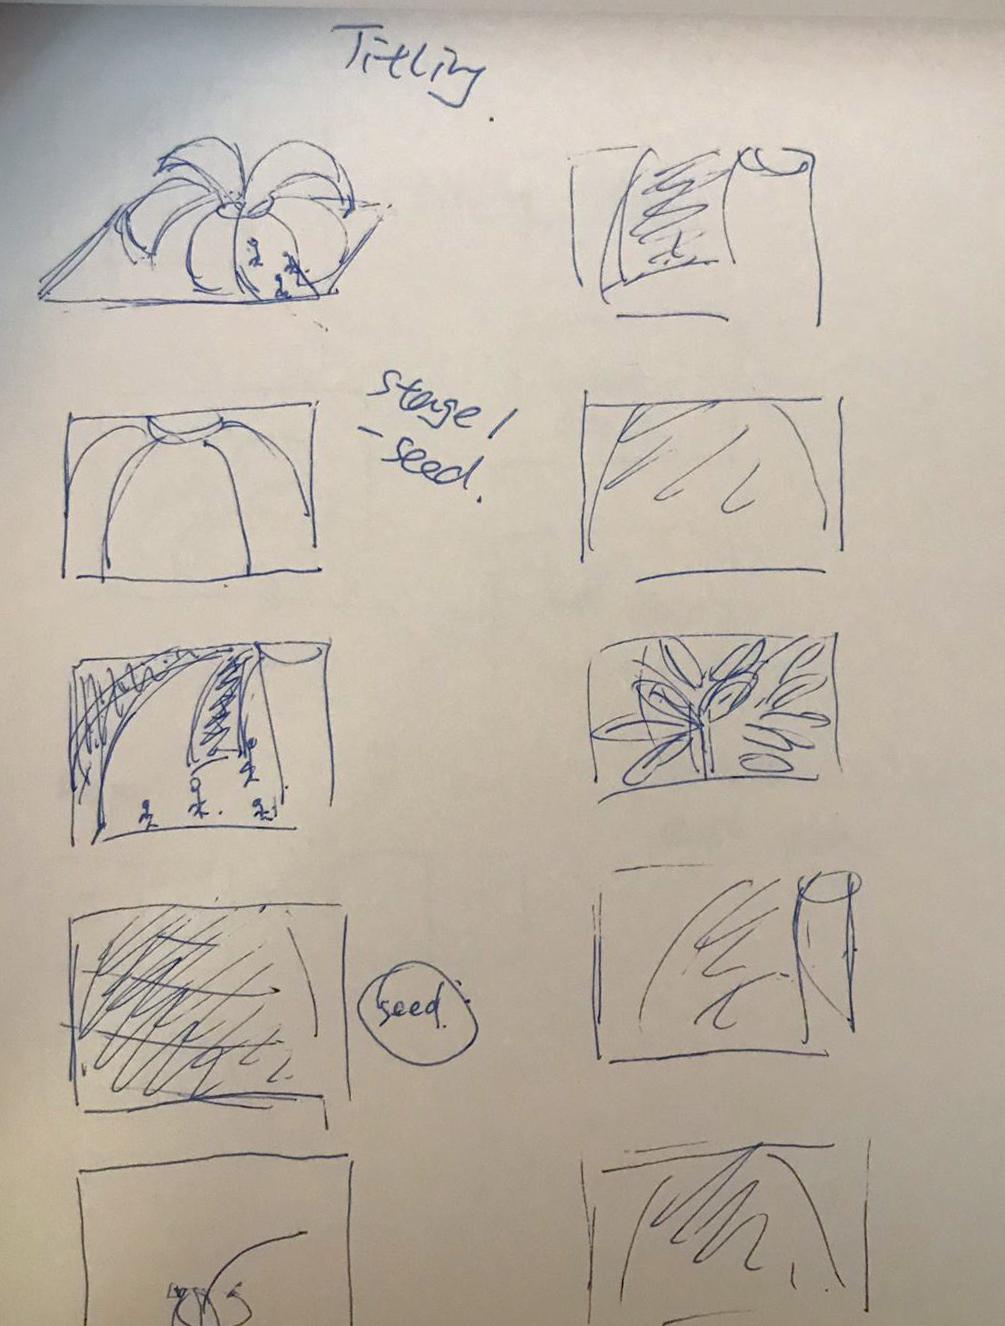 Titling
stage 1
- seed.
seed.